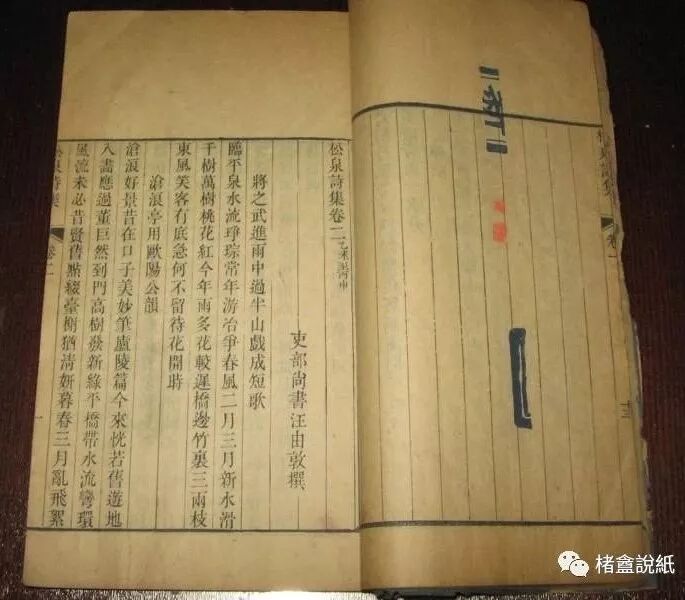 詩集
卷一
松泉詩集卷二 乙未丙申
吏部尚書汪由敦撰
將之武進雨中過半山戲成短歌
臨平泉水流琤琮常年游冶爭春風二月三月新水滑
千樹萬樹桃花紅今年雨多花較遲橋邊竹裏三兩枝
東風笑客有底急何不留待花開時
滄浪亭用歐陽公韻
滄浪好景昔在口子美妙筆廬陵篇今來恍若舊遊地
入畵應過董巨然到門高樹發新綠平橋帶水流彎環
風流未必昔賢舊點綴臺榭猶清妍暮春三月亂飛絮
松泉詩集 卷二 一
楮盦說紙